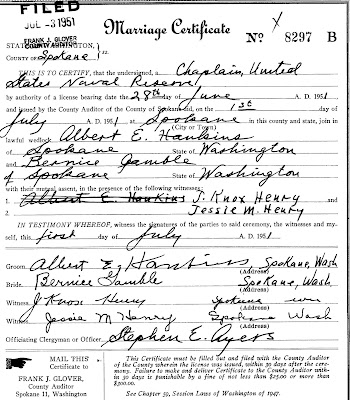 FILED
JUL -3 1951
FRANK J. GLOVER
COUNTY AUDITOR
Marriage Certificate
No 8297 B
STATE OF WASHINGTON,
COUNTY OF Spokane } ss.
THIS IS TO CERTIFY, that the undersigned, a Chaplain, United
States Naval Reserve
by authority of a license bearing date the 28th day of June A. D. 1951
and issued by the County Auditor of the County of Spokane did, on the 1st day of
July A. D. 1951 at Spokane in this county and state, join in
(City or Town)
lawful wedlock Albert E. Hankins
of Spokane State of Washington
and Bernice Gamble
of Spokane State of Washington
with their mutual assent, in the presence of the following witnesses:
1. Albert E. Hankins J. Knox Henry
2. Jessie M. Henry
IN TESTIMONY WHEREOF, witness the signatures of the parties to said ceremony, the witnesses and my-
self, this first day of July A. D. 1951
Groom Albert E. Hankins Spokane, Wash
(Address)
Bride Bernice Gamble Spokane, Wash.
(Address)
Witness J Knox Henry Spokane Wn
(Address)
Witness Jessie M Henry Spokane Wash
(Address)
Officiating Clergyman or Officer Stephen E. Ayers
MAIL THIS
Certificate to
FRANK J. GLOVER,
County Auditor
Spokane 11, Washington
This Certificate must be filled out and filed with the County Auditor
of the County wherein the license was issued, within 30 days after the cere-
mony. Failure to make and deliver Certificate to the County Auditor with-
in 30 days is punishable by a fine of not less than $25.00 or more than
$300.00.
See Chapter 59, Session Laws of Washington of 1947.